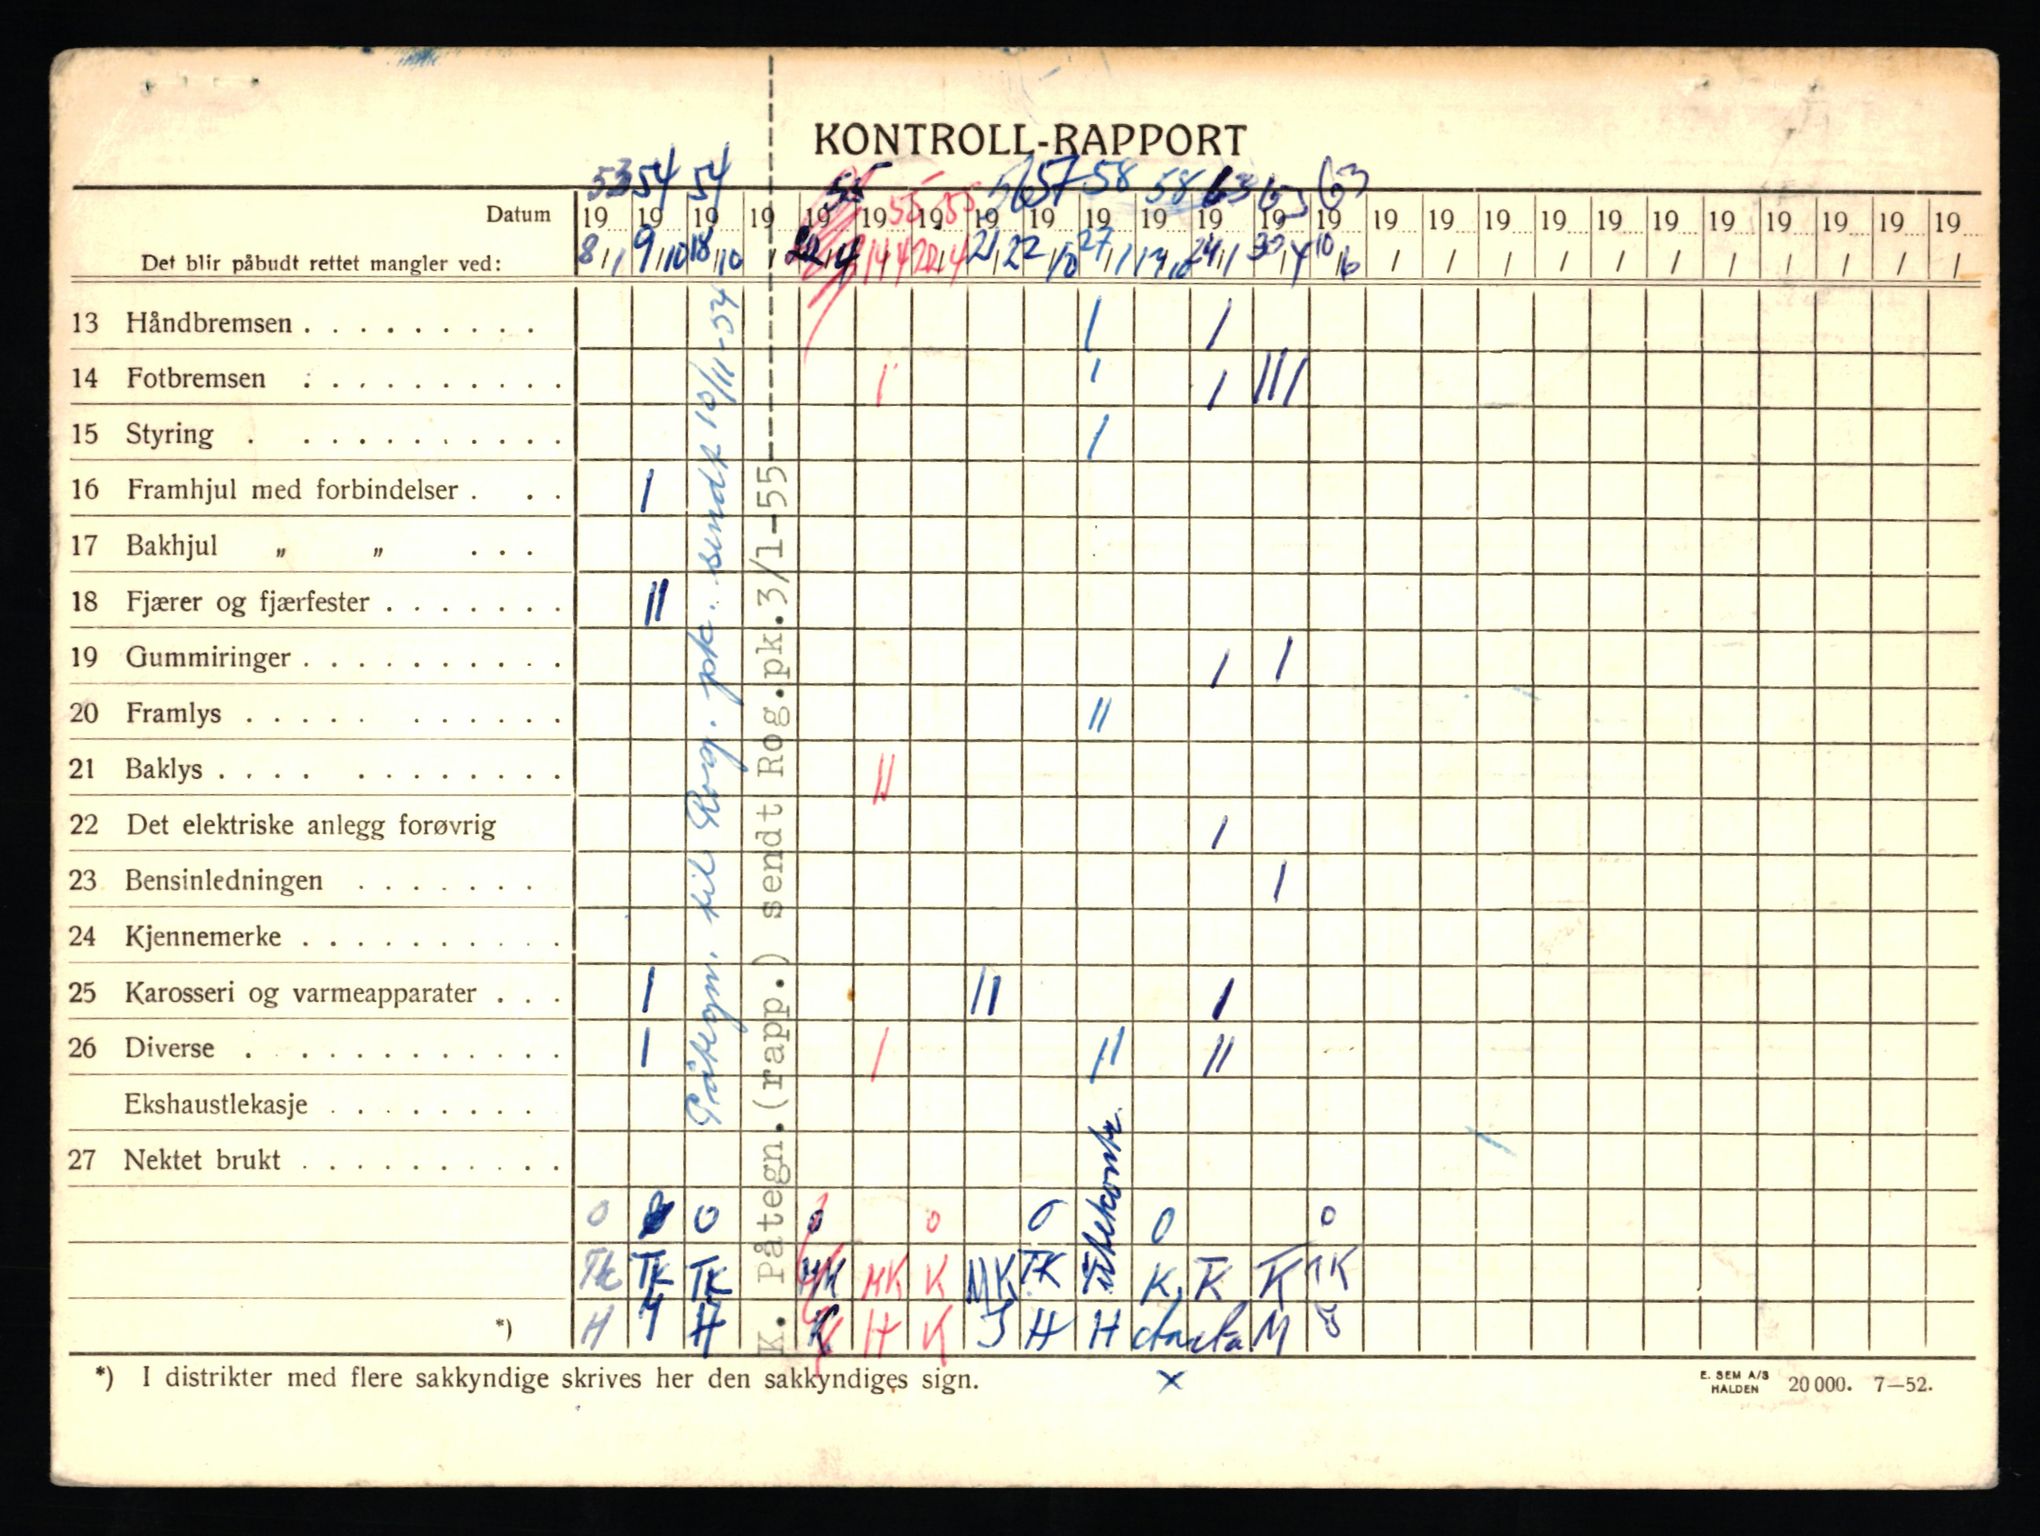 KONTROLL-RAPPORT
53 54 54 55 55 55 56 57 58 58 63 63 63
Datum 19 19 19 19 19 19 19 19 19 19 19 19 19 19 19 19 19 19 19 19 19 19 19 19 19
Det blir påbudt rettet mangler ved: 8/1 9/10 18/10 / 22/4 14/4 22/4 21/2 22/10 27/1 24/1 30/4 10/6 / / / / / / / / / / /
13 Håndbremsen . . . . . . . . . / /
14 Fotbremsen . . . . . . . . . . / / / ///
15 Styring . . . . . . . . . . . /
16 Framhjul med forbindelser . . . /
17 Bakhjul „ „ . . .
18 Fjærer og fjærfester . . . . . . . //
19 Gummiringer . . . . . . . . . . / /
20 Framlys . . . . . . . . . . . //
21 Baklys . . . . . . . . . . . . //
22 Det elektriske anlegg forøvrig /
23 Bensinledningen . . . . . . . /
24 Kjennemerke . . . . . . . . . .
25 Karosseri og varmeapparater . . . / // /
26 Diverse . . . . . . . . . . . / / /// //
Ekshaustlekasje . . . . . . . .
27 Nektet brukt . . . . . . . . . .
Påtegn. til Rog. pk. sendt 10/11-54
K. Påtegn.(rapp.) sendt Rog.pk.3/1-55-----
Utekont.
0 0 0 0 0 0 0
TK TK TK MK MK K MK TK K K K TK
*) H H K H K J H H M
*) I distrikter med flere sakkyndige skrives her den sakkyndiges sign.
x
E. SEM A/S
HALDEN 20 000. 7—52.